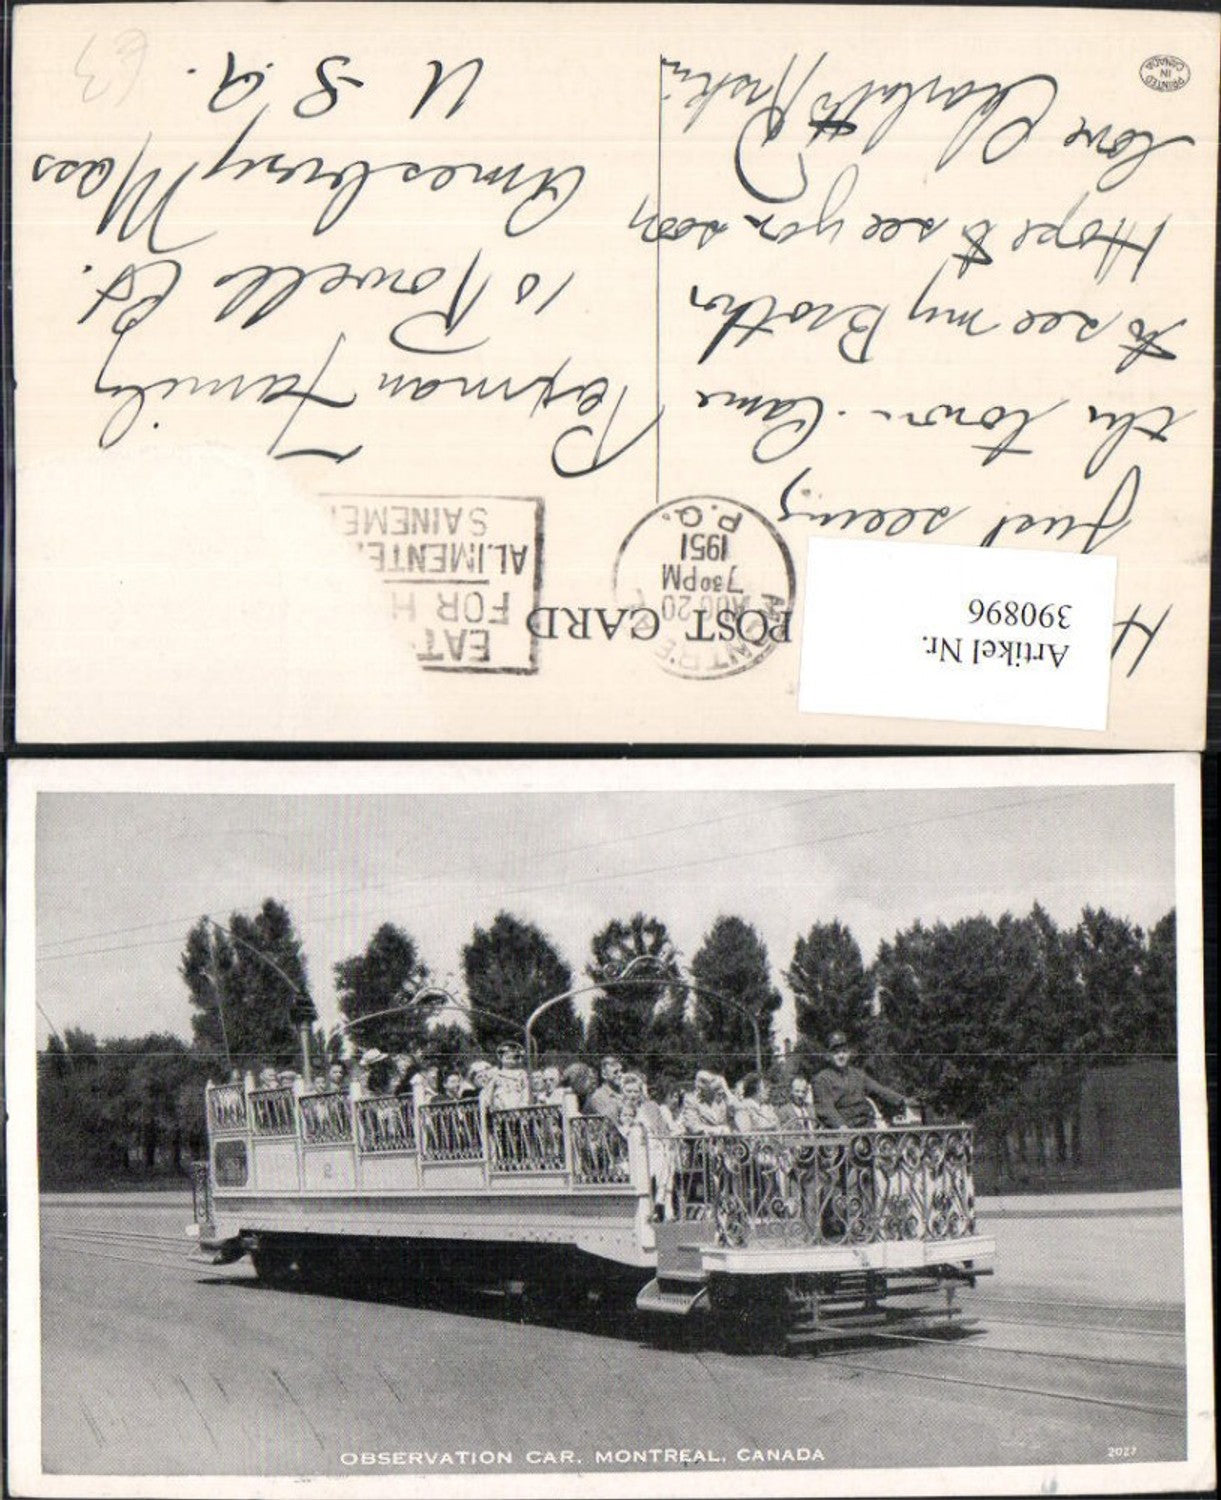 POST CARD
MONTRÉAL
AUG 20
7 30 PM
1951
P.Q.
EAT
FOR H
ALIMENTE
SAINEME
Artikel Nr.
390896
H
Just seeing
the town. Came
to see my Brother
Hope to see you soon
love Charlotte
Family
10 Rowell St.
Amesbury Mass
U S A.
63
PRINTED
IN
CANADA
2
OBSERVATION CAR, MONTREAL, CANADA
2027